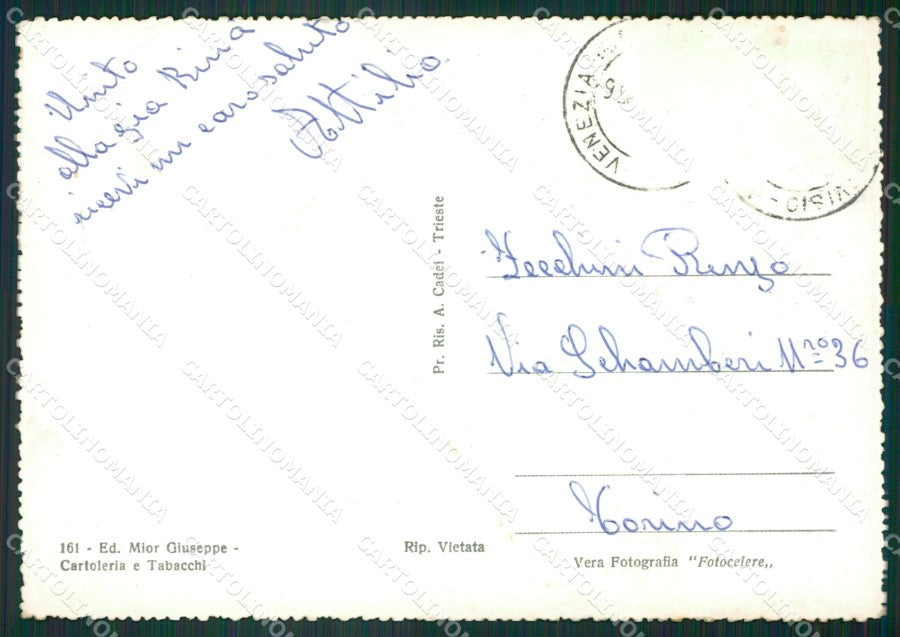 Unito
alla zia Rina
ricevi un caro saluto
Attilio
VENEZIA
CISIA
Pr. Ris. A. Cadel - Trieste
Zecchini Renzo
Via Schamberi Nro 36
Torino
161 - Ed. Mior Giuseppe -
Cartoleria e Tabacchi
Rip. Vietata
Vera Fotografia "Fotocelere„
CARTOLINOMANIA